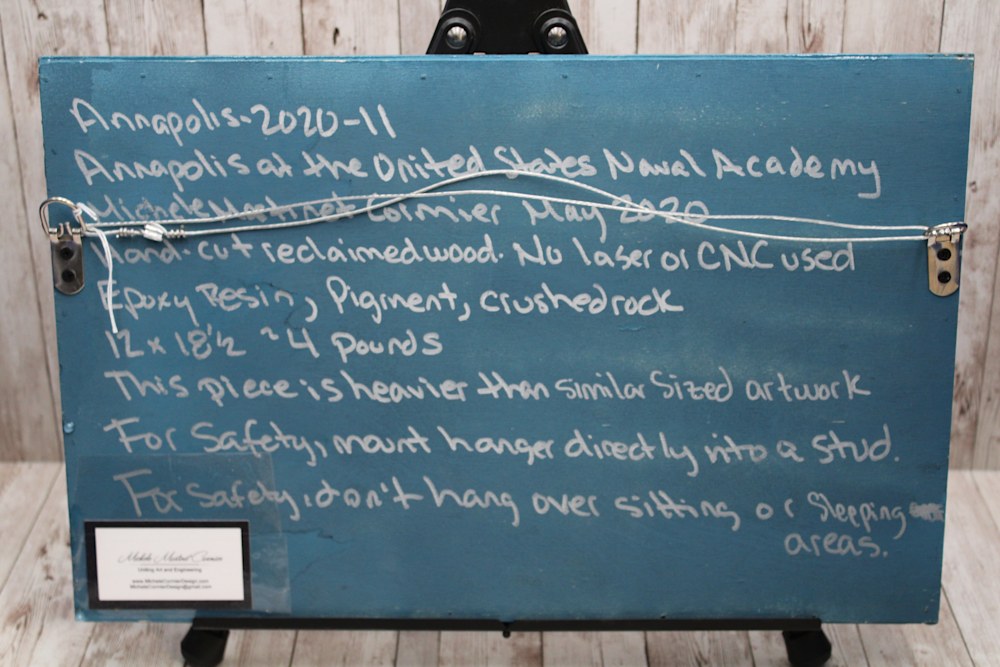 Annapolis-2020-11
Annapolis at the United States Naval Academy
Michele Martinet Cormier May 2020
Hand-cut reclaimed wood. No laser or CNC used
Epoxy Resin, Pigment, crushed rock
12 x 18 1/2 ~4 pounds
This piece is heavier than similar sized artwork
For Safety, mount hanger directly into a stud.
For Safety, don't hang over sitting or Sleeping
areas.
Uniting Art and Engineering
www.MicheleCormierDesign.com
MicheleCormierDesign@gmail.com